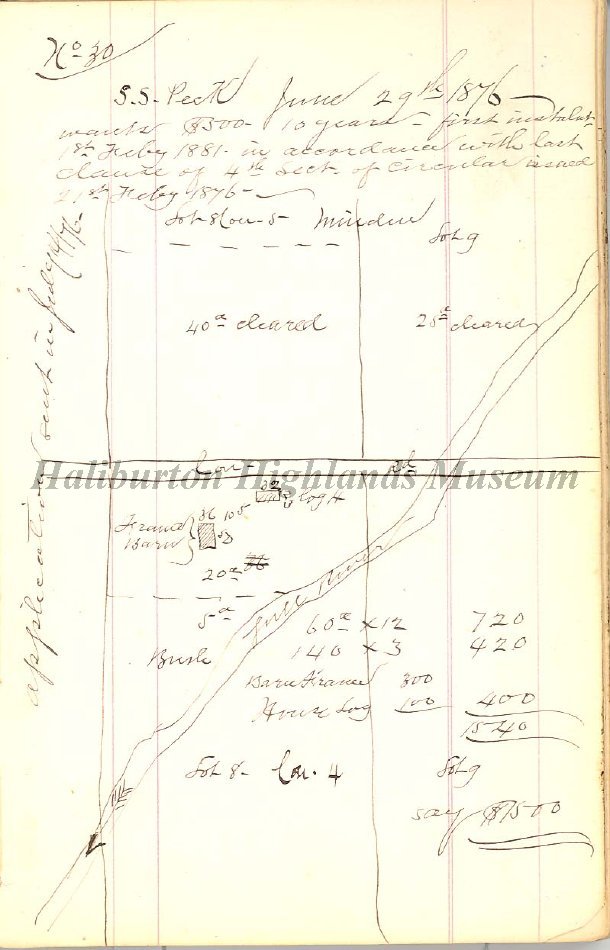 No 30
S.S. Peck June 29th 1876
wants $500 - 10 years - first instalmt
1st Feby 1881 - in accordance with last
clause of 4th Sect. of Circular issued
21st Feby 1876 -
Lot 8 Con. 5 Minden
Lot 9
40a cleared
25a cleared
application sent in July 4/76
Con Rd
Haliburton Highlands Museum
32
log H
Frame
Barn
36
53
20a
5a
Gull River
60a x 12 720
Bush 140 x 3 420
Barn Frame 300
House Log 100 400
1540
Lot 8 - Con. 4 Lot 9
say $1500